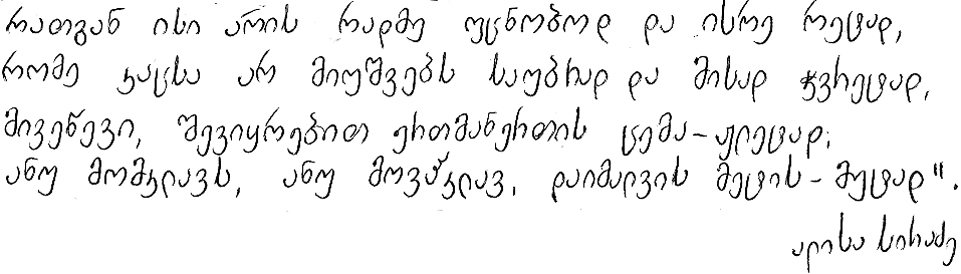 რათგან ისი არის რადმე უცნობოდ და ისრე რეტად,
რომე კაცსა არ მიუშვებს საუბრად და მისად ჭვრეტად,
მივეწევი, შევიყრებით ერთმანერთის ცემა-ჟლეტად;
ანუ მომკლავს, ანუ მოვჰკლავ, დაიმალვის მეტის-მეტად".
ალისა სირაძე